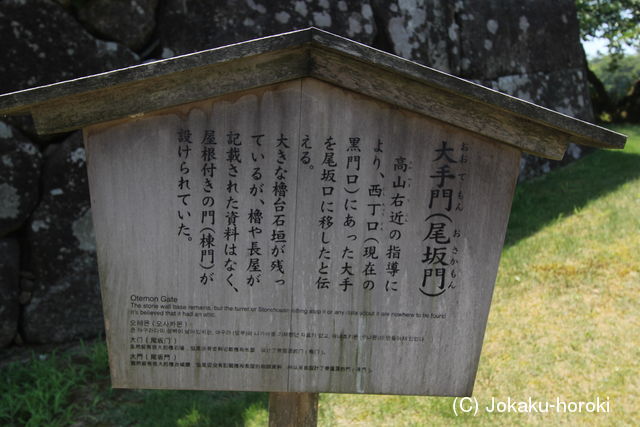 大手門(尾坂門)
おおてもん
おさかもん
高山右近の指導に
より、西丁口(現在の
黒門口)にあった大手
を尾坂口に移したと伝
える。
大きな櫓台石垣が残っ
ているが、櫓や長屋が
記載された資料はなく、
屋根付きの門(棟門)が
設けられていた。
Otemon Gate
The stone wall base remains, but the turret or Storehouse nothing atop it or any data about it are nowhere to be found.
It's believed that it had an attic.
오테몬 (오사카몬)
大门 (尾坂门)
大門 (尾坂門)
(C) Jokaku-horoki.